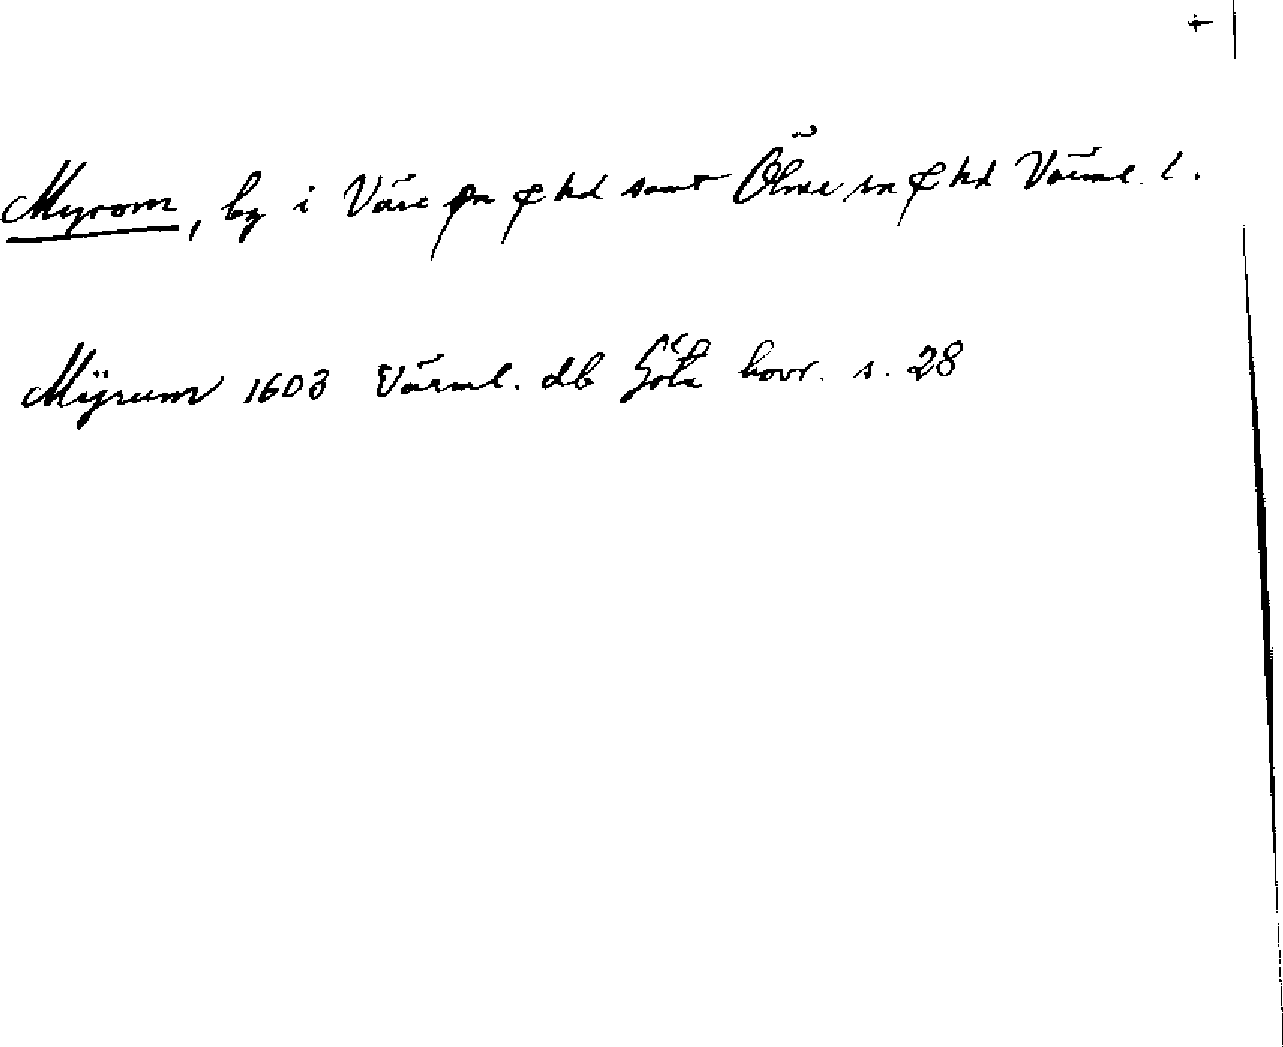 Myrom, by i Väse sn o hd samt Ölme sn o hd Värml. l.
Mÿrum 1603 Värml. db Göta hovr. s. 28